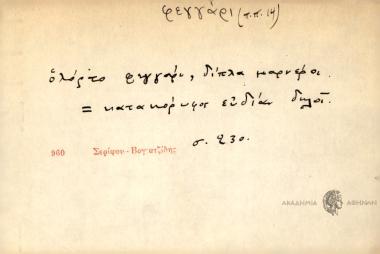 φεγγάρι (π.π. 14)
ὁλόρτο φεγγάρι, δίπλα
= κατακόρυφος εὐδίαν δηλοῖ.
σ. 230.
960 Σερίφου - Βογιατζίδης
ΑΚΑΔΗΜΙΑ ΑΘΗΝΩΝ